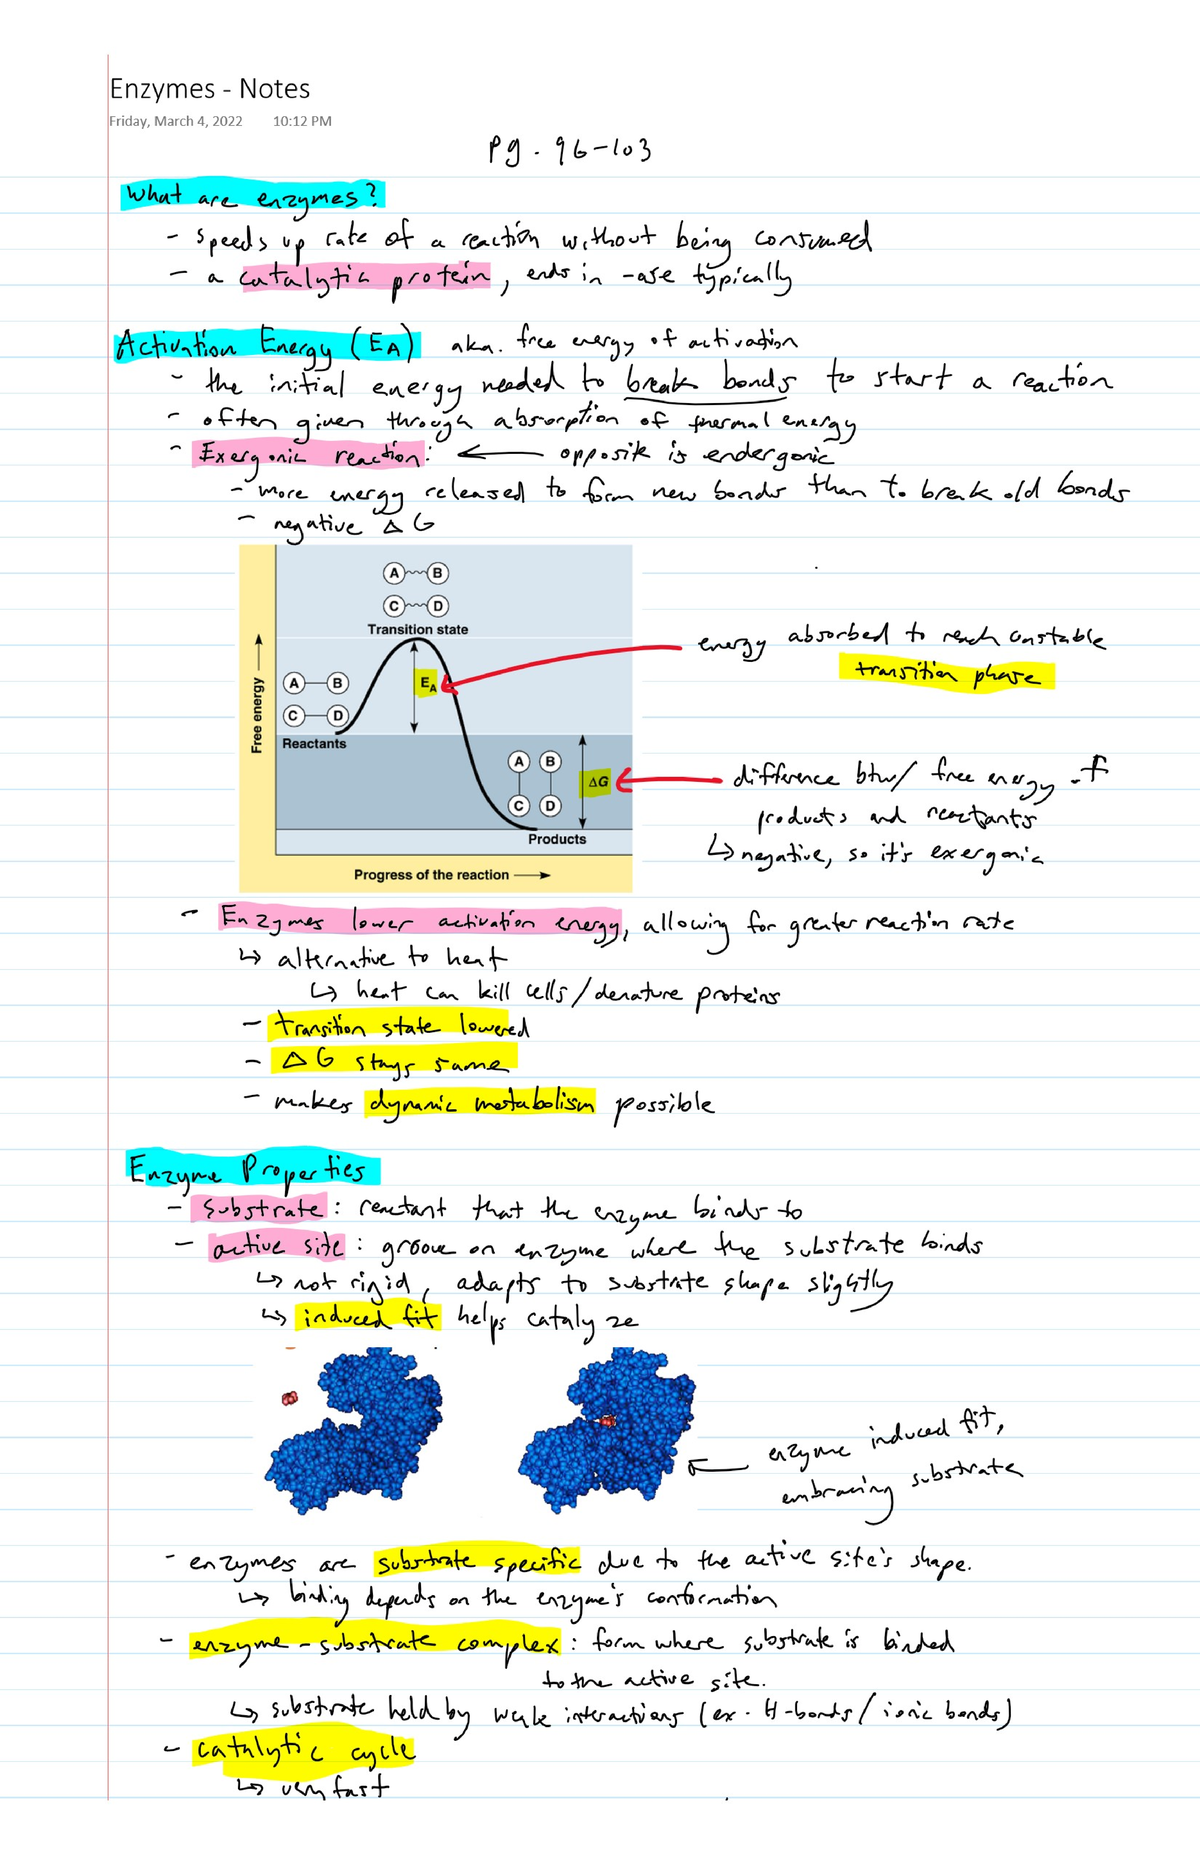 Enzymes - Notes
Friday, March 4, 2022 10:12 PM
Pg. 96-103
What are enzymes?
- speeds up rate of a reaction without being consumed
- a catalytic protein, ends in -ase typically
Activation Energy (EA) aka. free energy of activation
- the initial energy needed to break bonds to start a reaction
- often given through absorption of thermal energy
- Exergonic reaction: ← opposite is endergonic
- more energy released to form new bonds than to break old bonds
- negative ΔG
A B
C D
Transition state
A B
C D
Reactants
EA
energy absorbed to reach unstable
transition phase
Free energy →
A B
C D
ΔG
Products
Progress of the reaction →
difference btw/ free energy of
products and reactants
↳ negative, so it's exergonic
- Enzymes lower activation energy, allowing for greater reaction rate
↳ alternative to heat
↳ heat can kill cells/denature proteins
- transition state lowered
- ΔG stays same
- makes dynamic metabolism possible
Enzyme Properties
- substrate: reactant that the enzyme binds to
- active site: groove on enzyme where the substrate binds
↳ not rigid, adapts to substrate shape slightly
↳ induced fit helps catalyze
← enzyme induced fit,
embracing substrate
- enzymes are substrate specific due to the active site's shape.
↳ binding depends on the enzyme's conformation
- enzyme-substrate complex: form where substrate is binded
to the active site.
↳ substrate held by weak interactions (ex. H-bonds/ionic bonds)
- catalytic cycle
↳ very fast